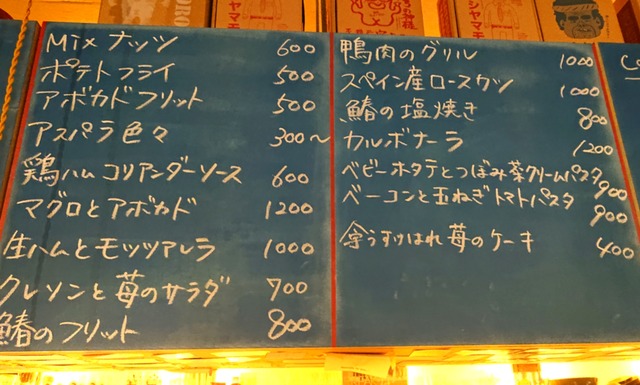 Mixナッツ 600
ポテトフライ 500
アボカドフリット 500
アスパラ色々 300〜
鶏ハム コリアンダーソース 600
マグロとアボカド 1200
生ハムとモッツアレラ 1000
クレソンと苺のサラダ 700
鰆のフリット 800
鴨肉のグリル 1000
スペイン産ロースカツ 1000
鰆の塩焼き 800
カルボナーラ 1200
ベビーホタテとつぼみ菜クリームパスタ 900
ベーコンと玉ねぎトマトパスタ 900
苺のケーキ 400